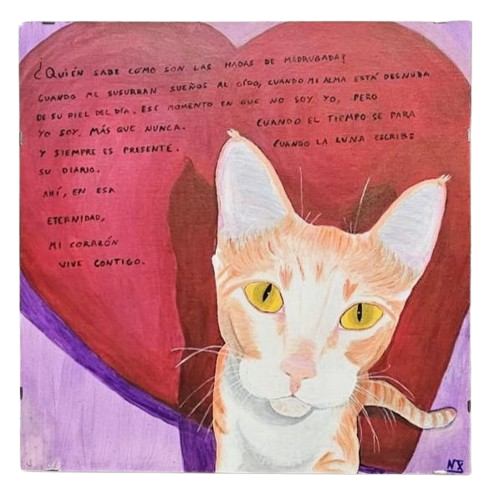 ¿QUIÉN SABE CÓMO SON LAS HADAS DE MADRUGADA?
CUANDO ME SUSURRAN SUEÑOS AL OÍDO, CUANDO MI ALMA ESTÁ DESNUDA
DE SU PIEL DEL DÍA. ESE MOMENTO EN QUE NO SOY YO, PERO
YO SOY, MÁS QUE NUNCA. CUANDO EL TIEMPO SE PARA
Y SIEMPRE ES PRESENTE. CUANDO LA LUNA ESCRIBE
SU DIARIO.
AHÍ, EN ESA
ETERNIDAD,
MI CORAZÓN
VIVE CONTIGO.